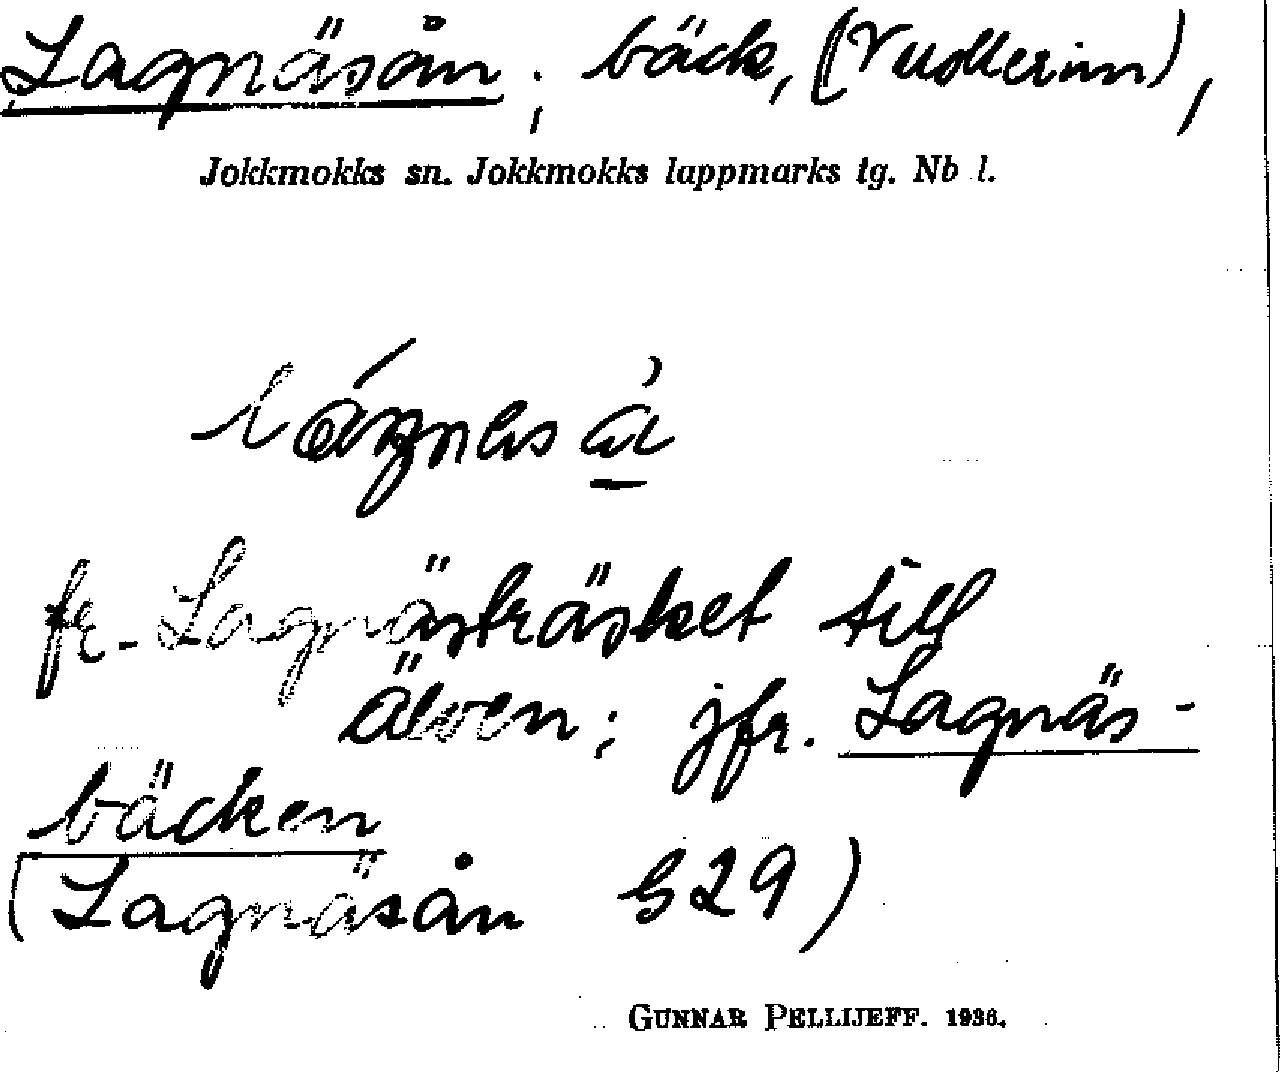 Lagnäsån, bäck, (Vuollerim),
Jokkmokks sn. Jokkmokks lappmarks tg. Nb l.
fr. Lagnästräsket till
älven; jfr. Lagnäs-
bäcken
(Lagnäsån S29)
GUNNAR PELLIJEFF. 1936.